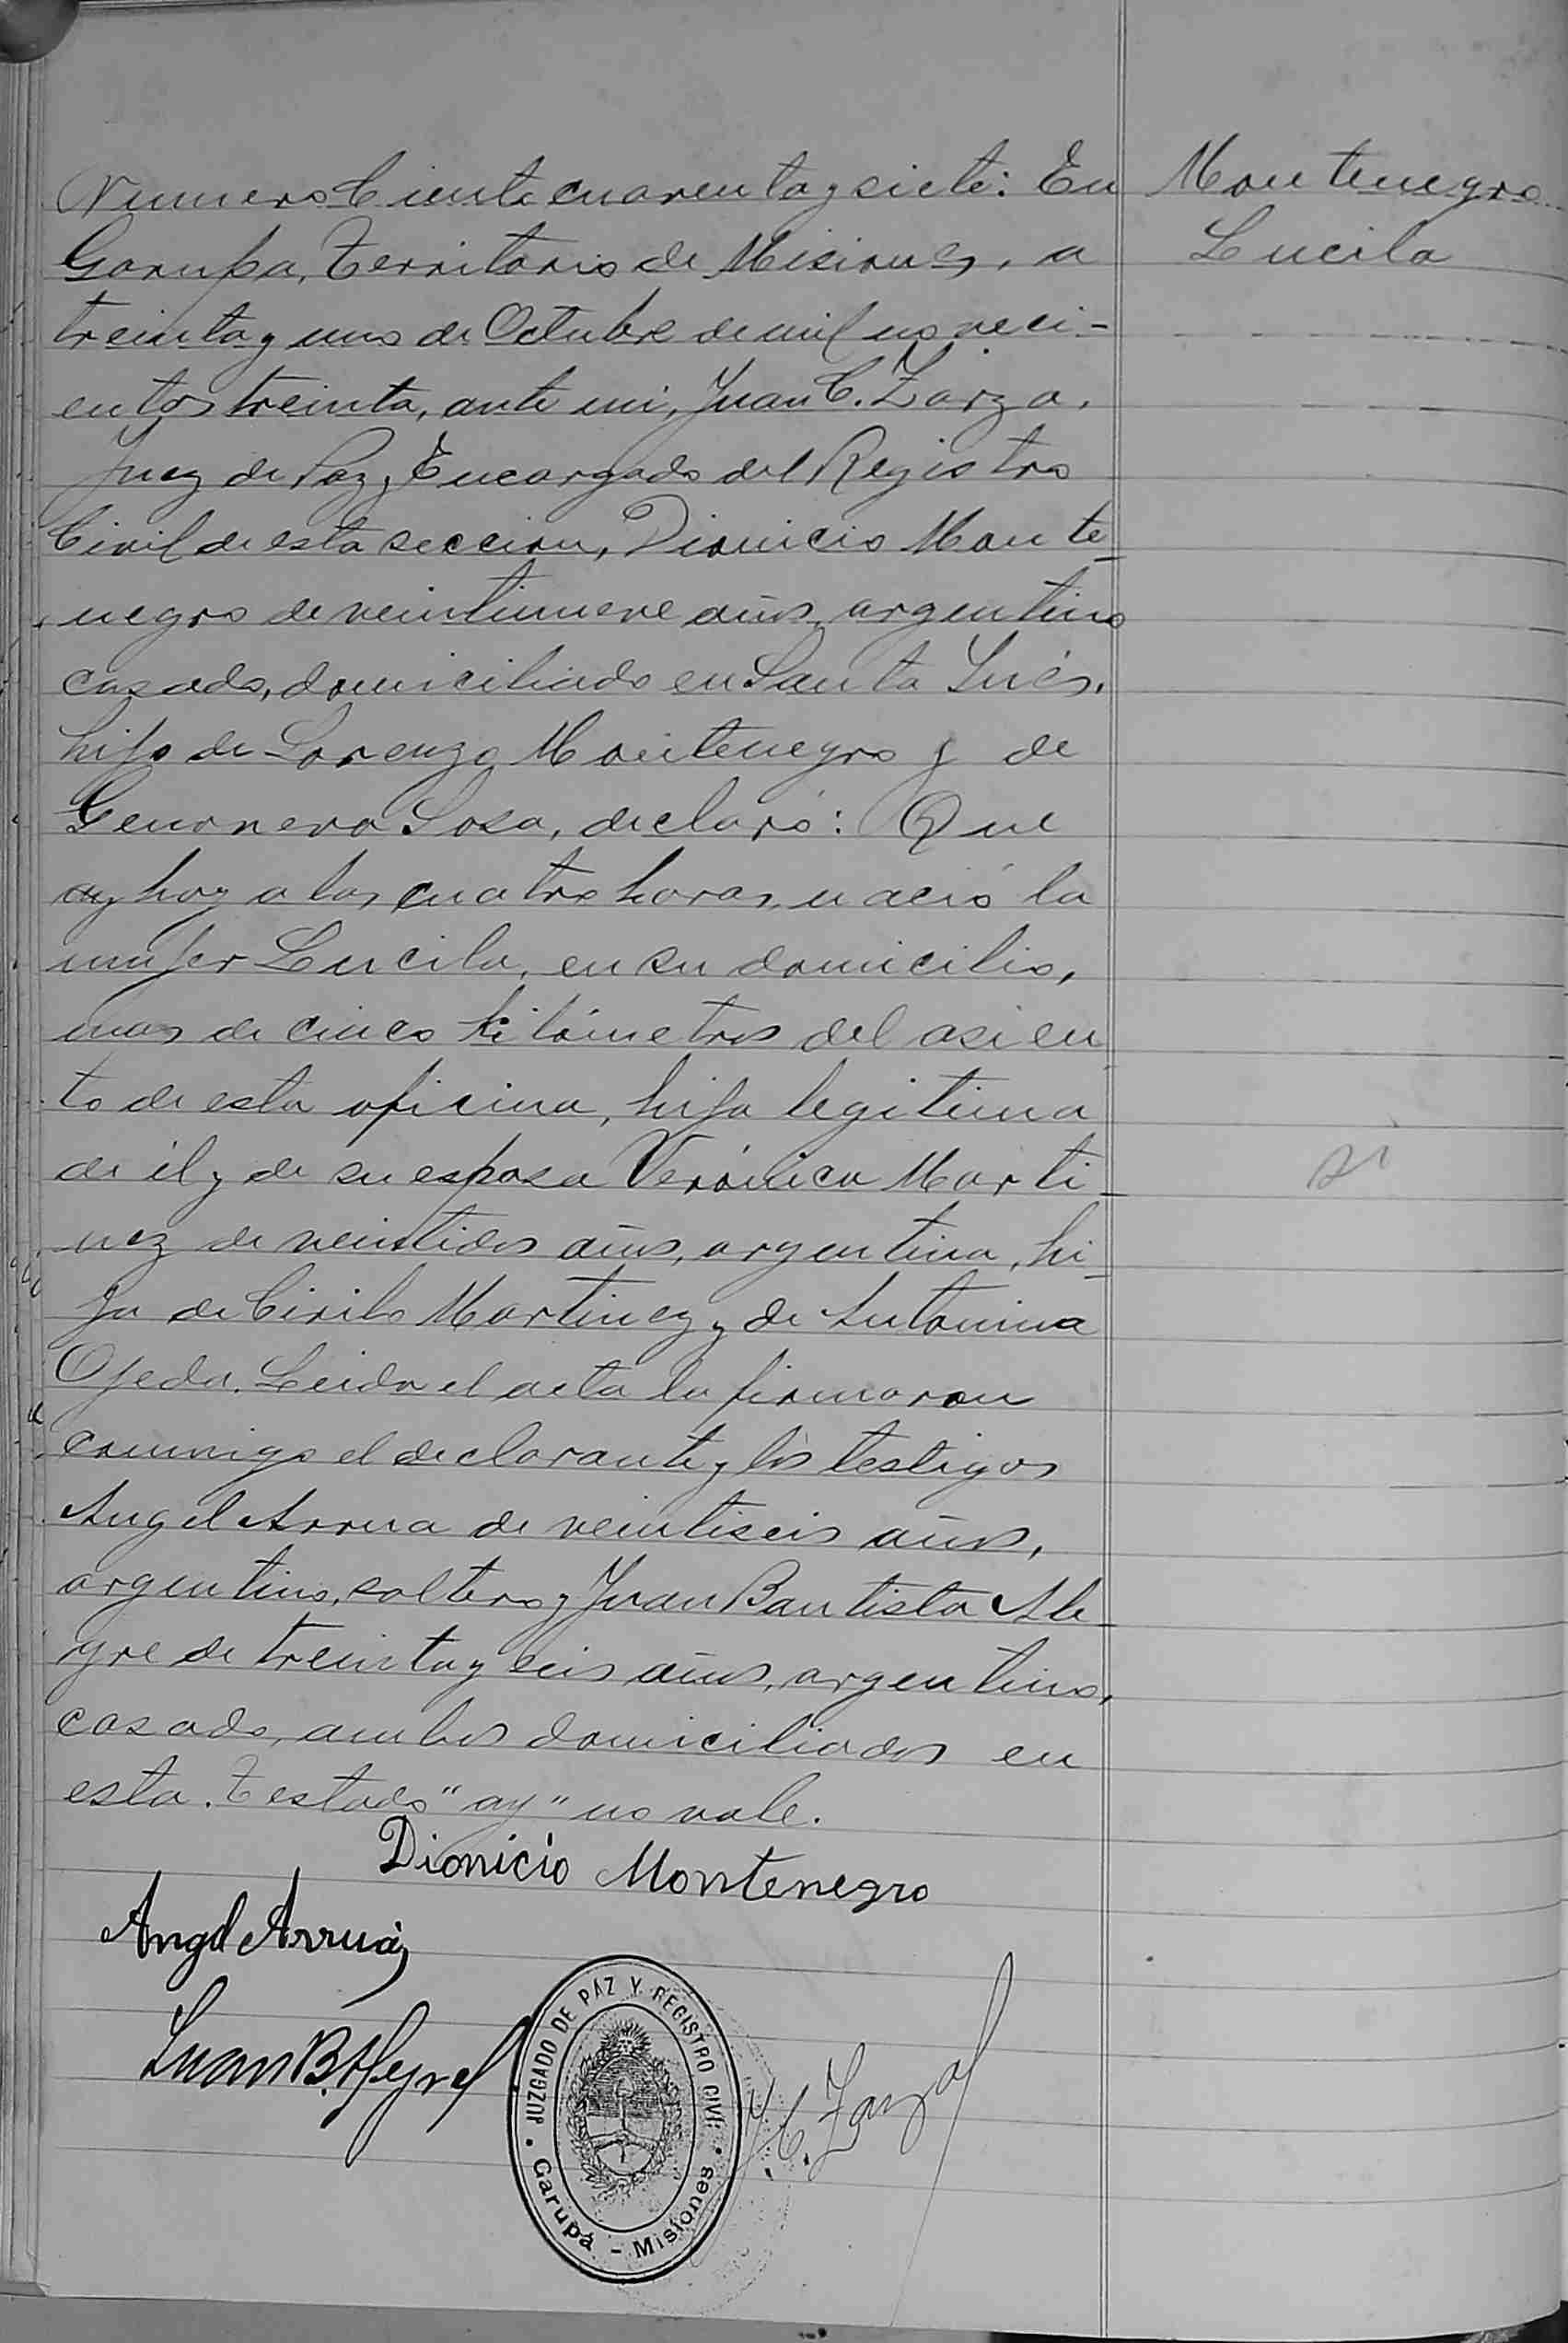 Numero Ciento cuarenta y siete: En
Montenegro
Lucila
Garupa, Territorio de Misiones, a
treinta y uno de Octubre de mil noveci-
entos treinta, ante mi, Juan C. Zarza,
Juez de Paz y Encargado del Registro
Civil de esta seccion, Dionicio Monte-
negro de veintinueve años, argentino
casado, domiciliado en Santa Inés,
hijo de Lorenzo Montenegro y de
Genonera Sosa, declaró: Que
ay hoy a las cuatro horas, nació la
mujer Lucila, en su domicilio,
mas de cinco kilómetros del asien
to de esta oficina, hija legitima
de él y de su esposa Verónica Marti-
sí
nez de veintidos años, argentina, hi-
ja de Cirilo Martinez y de Antonina
Ojeda. Leida el acta la firmaron
conmigo el declarante y los testigos
Angel Arrua de veintiseis años,
argentino, soltero y Juan Bautista Ale-
gre de treinta y seis años, argentino,
casado, ambos domiciliados en
esta. Testado "ay" no vale.
Dionicio Montenegro
Angel Arruá
Juan B. Alegre
JUZGADO DE PAZ Y REGISTRO CIVIL
Garupá - Misiones
J. C. Zarza